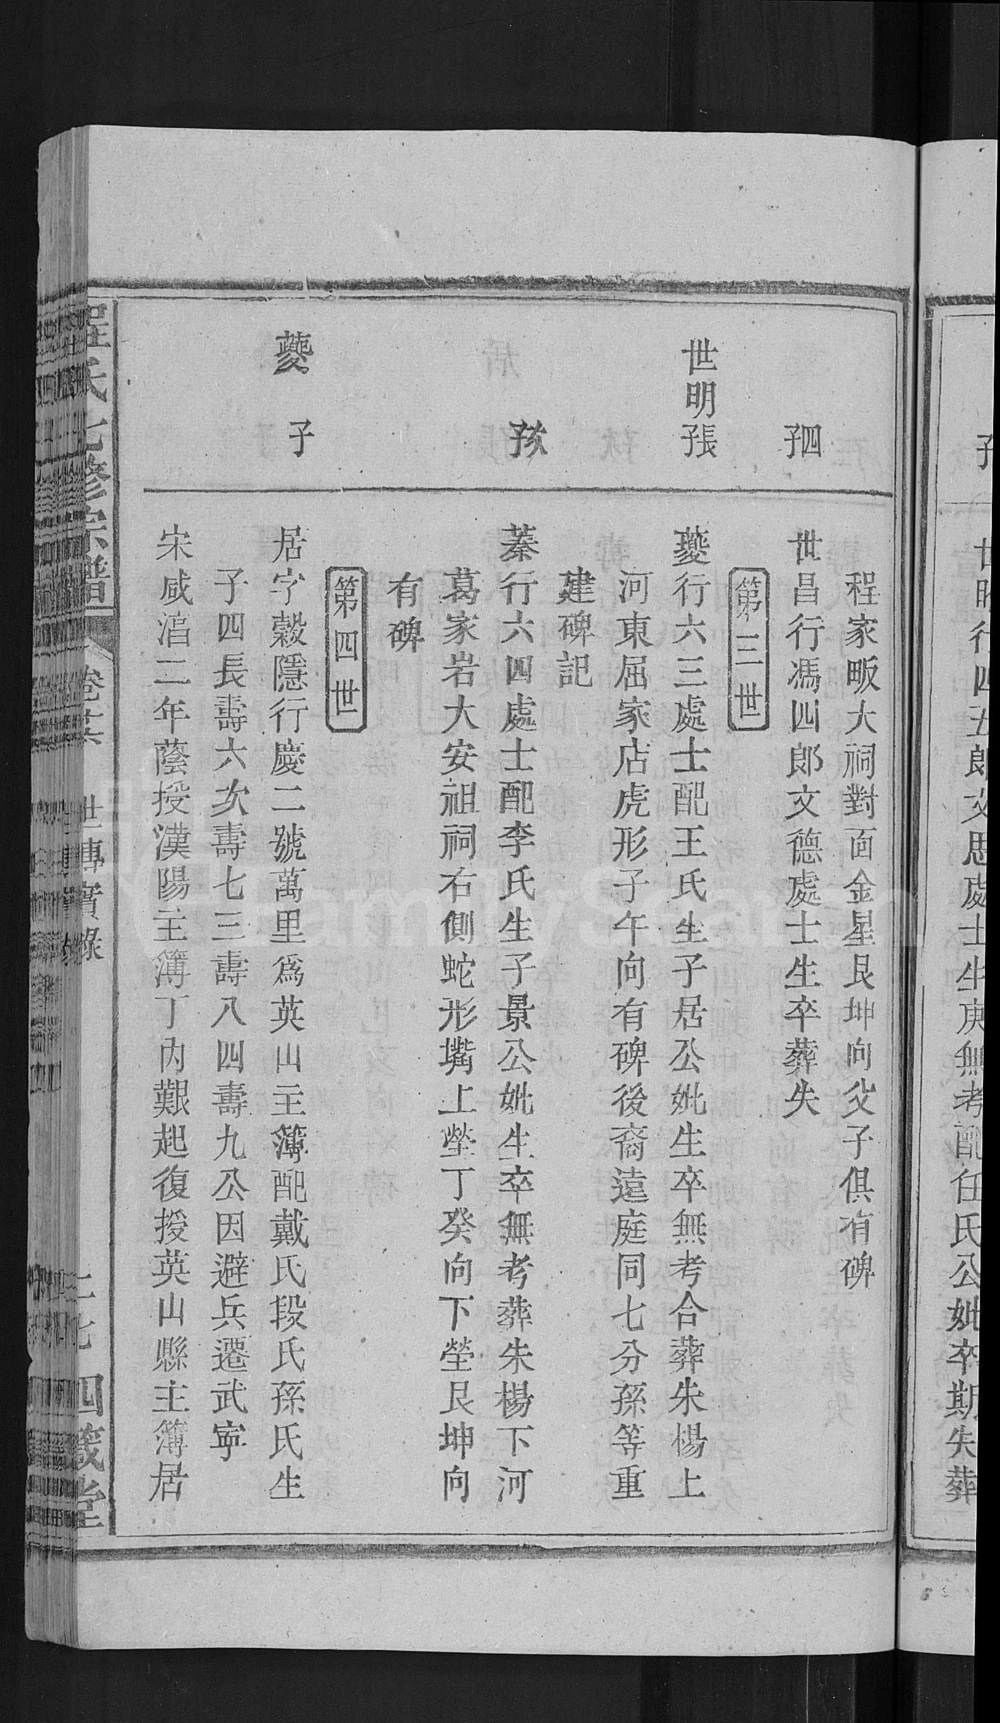 孖
世昭行四五郎文思處士生庚無考配任氏公妣卒期失葬
程家畈大祠對面金星艮坤向父子俱有碑
四子
世昌行馮四郎文德處士生卒葬失
第三世
世明長子
夔行六三處士配王氏生子居公妣生卒無考合葬朱楊上
河東屈家店虎形子午向有碑後裔遠庭同七分孫等重
建碑記
次子
蓁行六四處士配李氏生子景公妣生卒無考葬朱楊下河
葛家岩大安祖祠右側蛇形嘴上塋丁癸向下塋艮坤向
有碑
第四世
夔子
居字穀隱行慶二號萬里爲英山主簿配戴氏段氏孫氏生
子四長壽六次壽七三壽八四壽九公因避兵遷武寧
宋咸淳二年蔭授漢陽主簿丁內艱起復授英山縣主簿居
程氏七修宗譜 卷 世傳實錄 二七 四箴堂